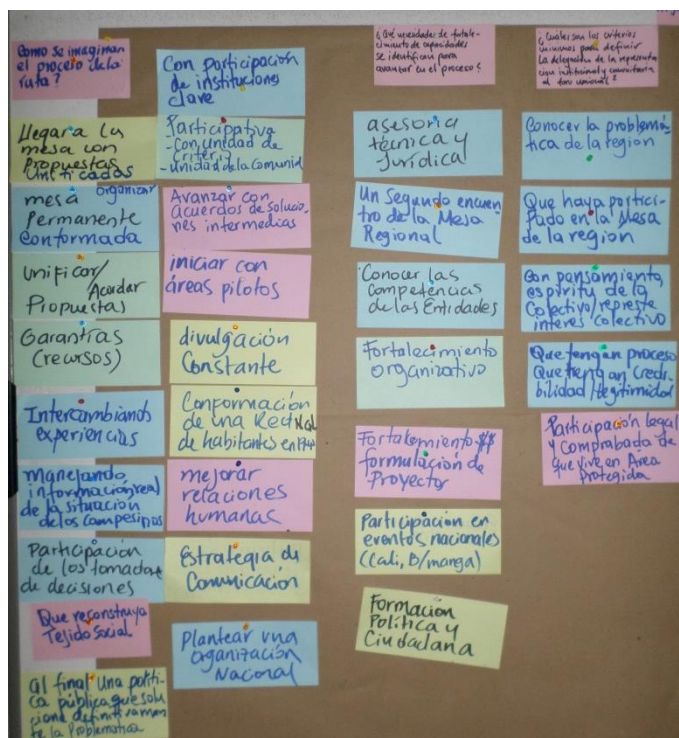 Como se imaginan
el proceso de la
ruta?
Llegar a la
mesa con
Propuestas
Unificadas
mesa organizar
Permanente
conformada
Unificar/
Acordar
Propuestas
Garantías
(recursos)
Intercambiando
experiencias
Manejando
información real
de la situación
de los campesinos
Participación
de los tomadores
de decisiones
Que reconstruya
Tejido Social
Al final una políti-
ca pública que solu
cione definitivamen
te la Problematica
Con participación
de instituciones
clave
Participativa
- Con unidad de
criterio
- Unidad de la Comunid
Avanzar con
acuerdos de solucio-
nes intermedias
iniciar con
áreas pilotos
divulgación
Constante
Conformación
de una Red Nal
de habitantes en
mejorar
relaciones
humanas
Estrategia de
Comunicación
Plantear una
organización
Nacional
¿Qué necesidades de fortale-
cimiento de capacidades
se identifican para
avanzar en el proceso?
asesoria
técnica y
Jurídica
Un Segundo encuen
tro de la Mesa
Regional
Conocer las
competencias
de las Entidades
Fortalecimiento
organizativo
Fortalecimiento $$
formulación de
Proyector
Participación en
eventos nacionales
(Cali, B/manga)
Formacion
Política y
Ciudadana
¿Cuales son los criterios
minimos para definir
la delegación de la representa
cion institucional y comunitaria
al foro nacional?
Conocer la problemá
tica de la region
Que haya partici-
pado en la Mesa
de la region
Con pensamiento,
espiritu de lo
Colectivo/represte
interes colectivo
Que tengan proceso
Que tengan Credi-
bilidad/legitimidad
Participación legal
y Comprobada de
que vive en Area
Protegida